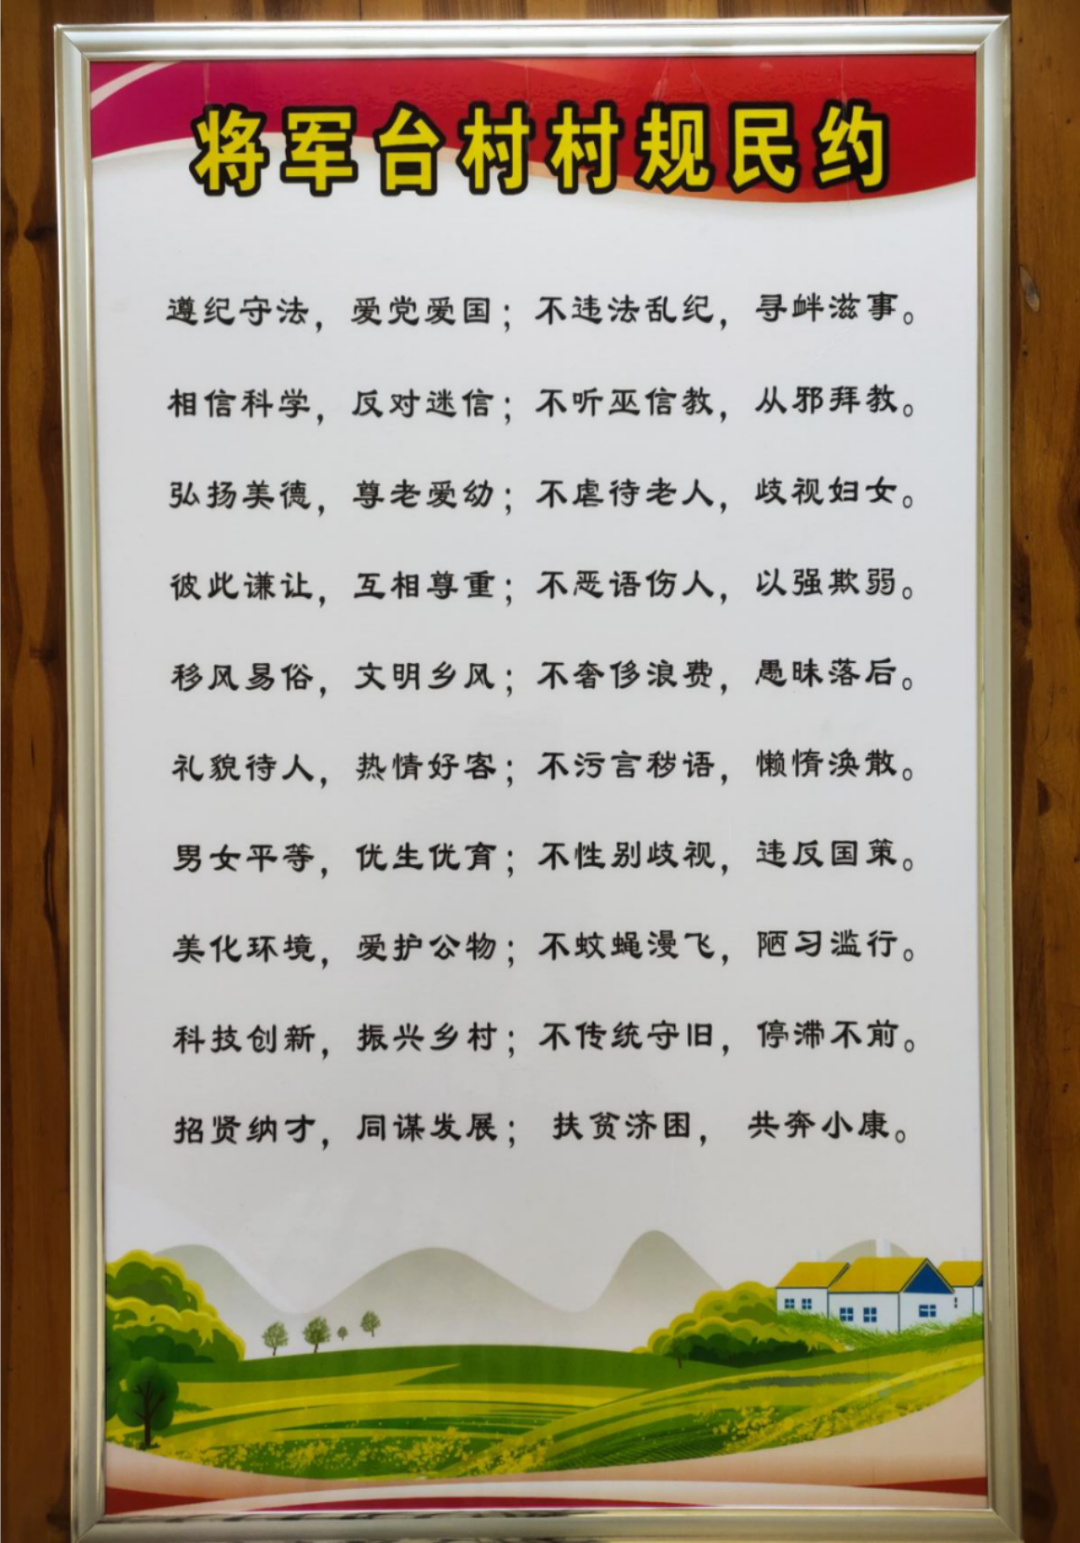 将军台村村规民约
遵纪守法，爱党爱国；不违法乱纪，寻衅滋事。
相信科学，反对迷信；不听巫信教，从邪拜教。
弘扬美德，尊老爱幼；不虐待老人，歧视妇女。
彼此谦让，互相尊重；不恶语伤人，以强欺弱。
移风易俗，文明乡风；不奢侈浪费，愚昧落后。
礼貌待人，热情好客；不污言秽语，懒惰涣散。
男女平等，优生优育；不性别歧视，违反国策。
美化环境，爱护公物；不蚊蝇漫飞，陋习滥行。
科技创新，振兴乡村；不传统守旧，停滞不前。
招贤纳才，同谋发展；扶贫济困，共奔小康。